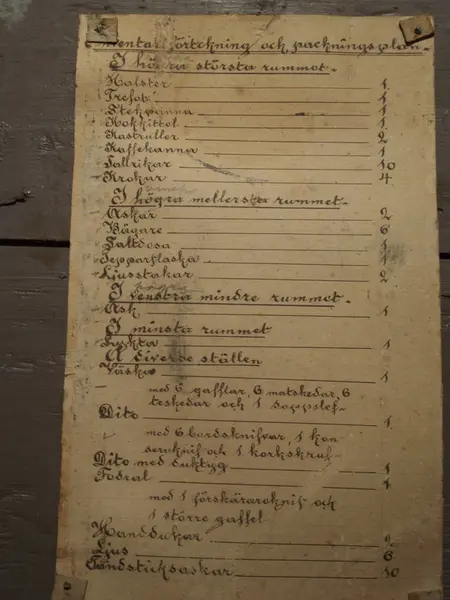 Inventarförtekning och packningsplan.
I högra största rummet.
Halster 1
Trefot 1
Stekpanna 1
Kokkittel 1
Kastruller 2
Kaffekanna 1
Tallrikar 10
Krokar 4
I högra mellersta rummet.
Askar 2
Bägare 6
Saltdosa 1
Pepparflaska 1
Ljusstakar 2
högra
I venstra mindre rummet.
Ask 1
I minsta rummet
Lykta 1
Å diverse ställen
Väska 1
med 6 gafflar, 6 matskedar, 6
teskedar och 1 soppslef.
Dito 1
med 6 bordsknifvar, 1 kon
servknif och 1 korkskruf.
Dito med duktyg 1
Fodral 1
med 1 förskäraroknif och
1 större gaffel
Handdukar 2
Ljus 6
Tändsticksaskar 10